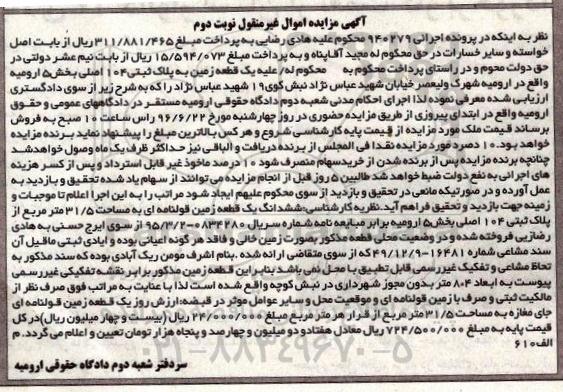 آگهی مزایده اموال غیرمنقول نوبت دوم
نظر به اینکه در پرونده اجرائی ۹۴۰۲۷۹ محکوم علیه هادی رضایی به پرداخت مبلغ ۳۱۱/۸۸۱/۴۶۵ ریال از بابت اصل
خواسته و سایر خسارات در حق محکوم له مجید آقاپناه و به پرداخت مبلغ ۱۵/۵۹۴/۰۷۳ ریال از بابت نیم عشر دولتی در
حق دولت محوم و در راستای پرداخت محکوم به محکوم له/ علیه یک قطعه زمین به پلاک ثبتی ۱۰۴ اصلی بخش ۵ ارومیه
واقع در ارومیه شهرک ولیعصر خیابان شهید عباس نژاد نبش کوی ۱۹ شهید عباس نژاد را که به شرح زیر از سوی دادگستری
ارزیابی شده معرفی نموده لذا اجرای احکام مدنی شعبه دوم دادگاه حقوقی ارومیه مستقر در دادگاههای عمومی و حقوق
ارومیه واقع در ابتدای پیروزی از طریق مزایده حضوری در روز چهارشنبه مورخ ۹۶/۶/۲۲ راس ساعت ۱۰ صبح به فروش
برساند قیمت ملک مورد مزایده از قیمت پایه کارشناسی شروع و هر کس بالاترین مبلغ را پیشنهاد نماید برنده مزایده
خواهد بود. ۱۰ دصرد مورد مزایده نقدا فی المجلس از برنده دریافت و الباقی نیز حداکثر ظرف یک ماه وصول خواهد شد
چنانچه برنده مزایده پس از برنده شدن از خرید سهام منصرف شود ۱۰ درصد ماخوذ غیر قابل استرداد و پس از کسر هزینه
های اجرائی به نفع دولت ضبط خواهد شد طالبین ۵ روز قبل از انجام مزایده می توانند از سهام یاد شده تحقیق و بازدید به
عمل آورده و در صورتیکه مانعی در تحقیق و بازدید از سوی محکوم علیهم ایجاد شود مراتب را به این اجرا اعلام تا موجبات و
زمینه جهت بازدید و تحقیق فراهم آید. نظریه کارشناسی: ششدانگ یک قطعه زمین قولنامه ای به مساحت ۳۱/۵ متر مربع از
پلاک ثبتی ۱۰۴ اصلی بخش ۵ ارومیه برابر مبایعه نامه شماره سریال ۰۸۳۴۲۸۰-۹۵/۳/۲ از سوی ایرج حسنی به هادی
رضازیی فروخته شده و در وضعیت محلی قطعه مذکور بصورت زمین خالی و فاقد هر گونه اعیانی بوده و ایادی ثبتی ماقبل آن
سند مشاعی شماره ۱۶۴۸۱-۴۹/۱۲/۹ که از سوی متقاضی ارائه شده. بنام اشرف مومن ریک آبادی بوده که سند مذکور به
تحاظ مشاعی و تفکیک غیررسمی قابل تطبیق با محل نمی باشد بنابراین قطعه زمین مذکور برابر نقشه تفکیکی غیررسمی
پیوست به ابعاد ۸.۴ متر بدون مجوز شهرداری در نبش کوچه واقع شده است لذا با عنایت به مراتب فوق صرف نظر از
مالکیت ثبتی و صرف با زمین قولنامه ای و موقعیت محل و سایر عوامل موثر در قبضه: ارزش روز یک قطعه زمین قولنامه ای
جای مغازه به مساحت ۳۱/۵ متر مربع از قرار هر متر مربع مبلغ ۲۴/۰۰۰/۰۰۰ ریال (بیست و چهار میلیون ریال) در کل
قیمت پایه به مبلغ ۷۲۴/۵۰۰/۰۰۰ ریال معادل هفتاد و دو میلیون و چهارصد و پنجاه هزار تومان تعیین و اعلام می گردد. م
الف ۶۱۰
سردفتر شعبه دوم دادگاه حقوقی ارومیه
۰۲۱-۸۸۳۴۹۶۷۰-۵